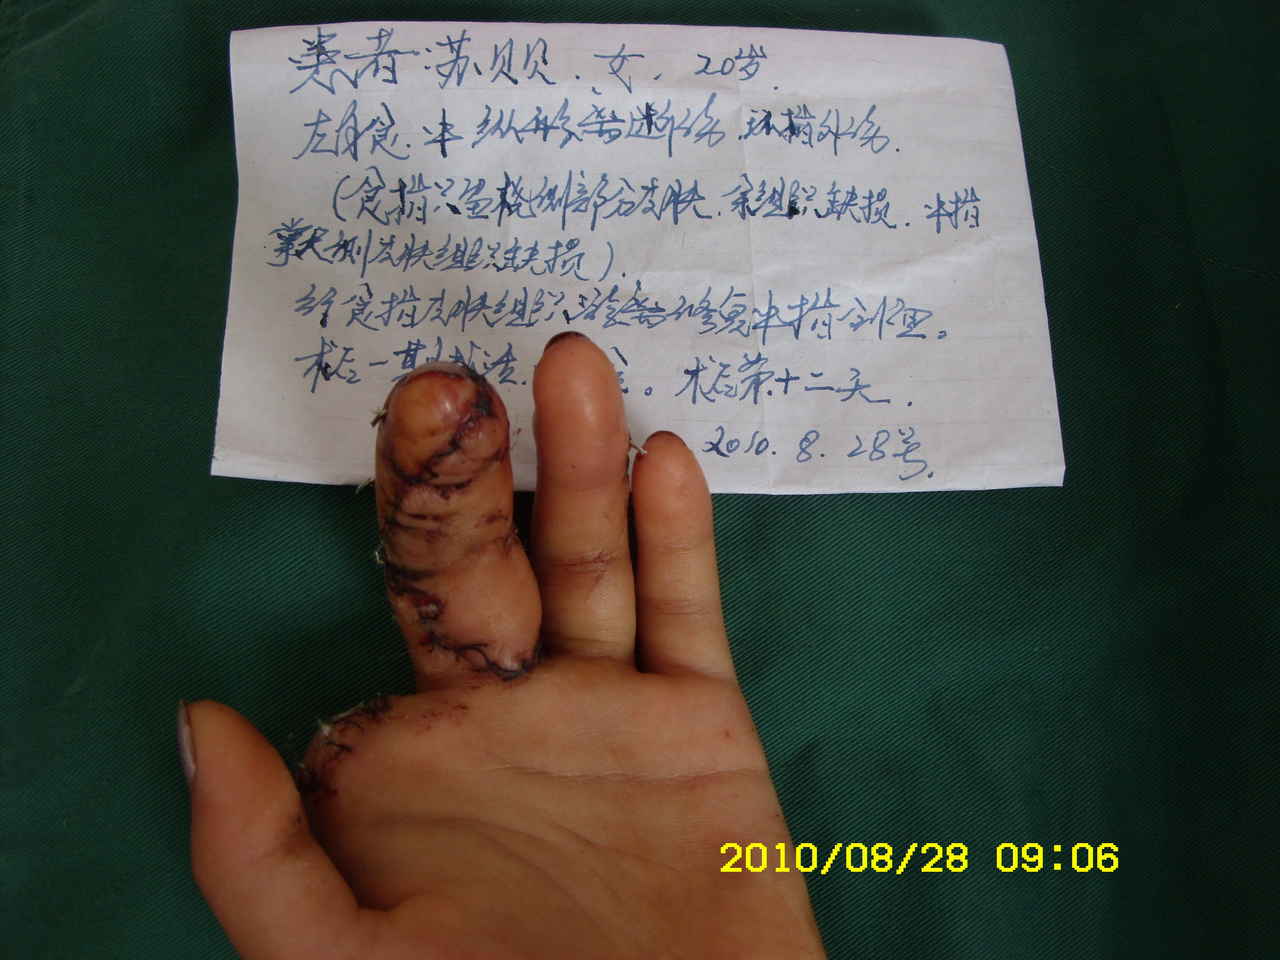 患者:苏贝贝、女、20岁.
左手食.中 纵形离断伤.环指外伤.
(食指仅留桡侧部分皮肤.余组织缺损.中指
掌尺侧皮肤组织缺损).
经食指皮肤组织游离修复中指创面。
术后一期成活. 。术后第十二天.
2010.8.28号.
2010/08/28 09:06